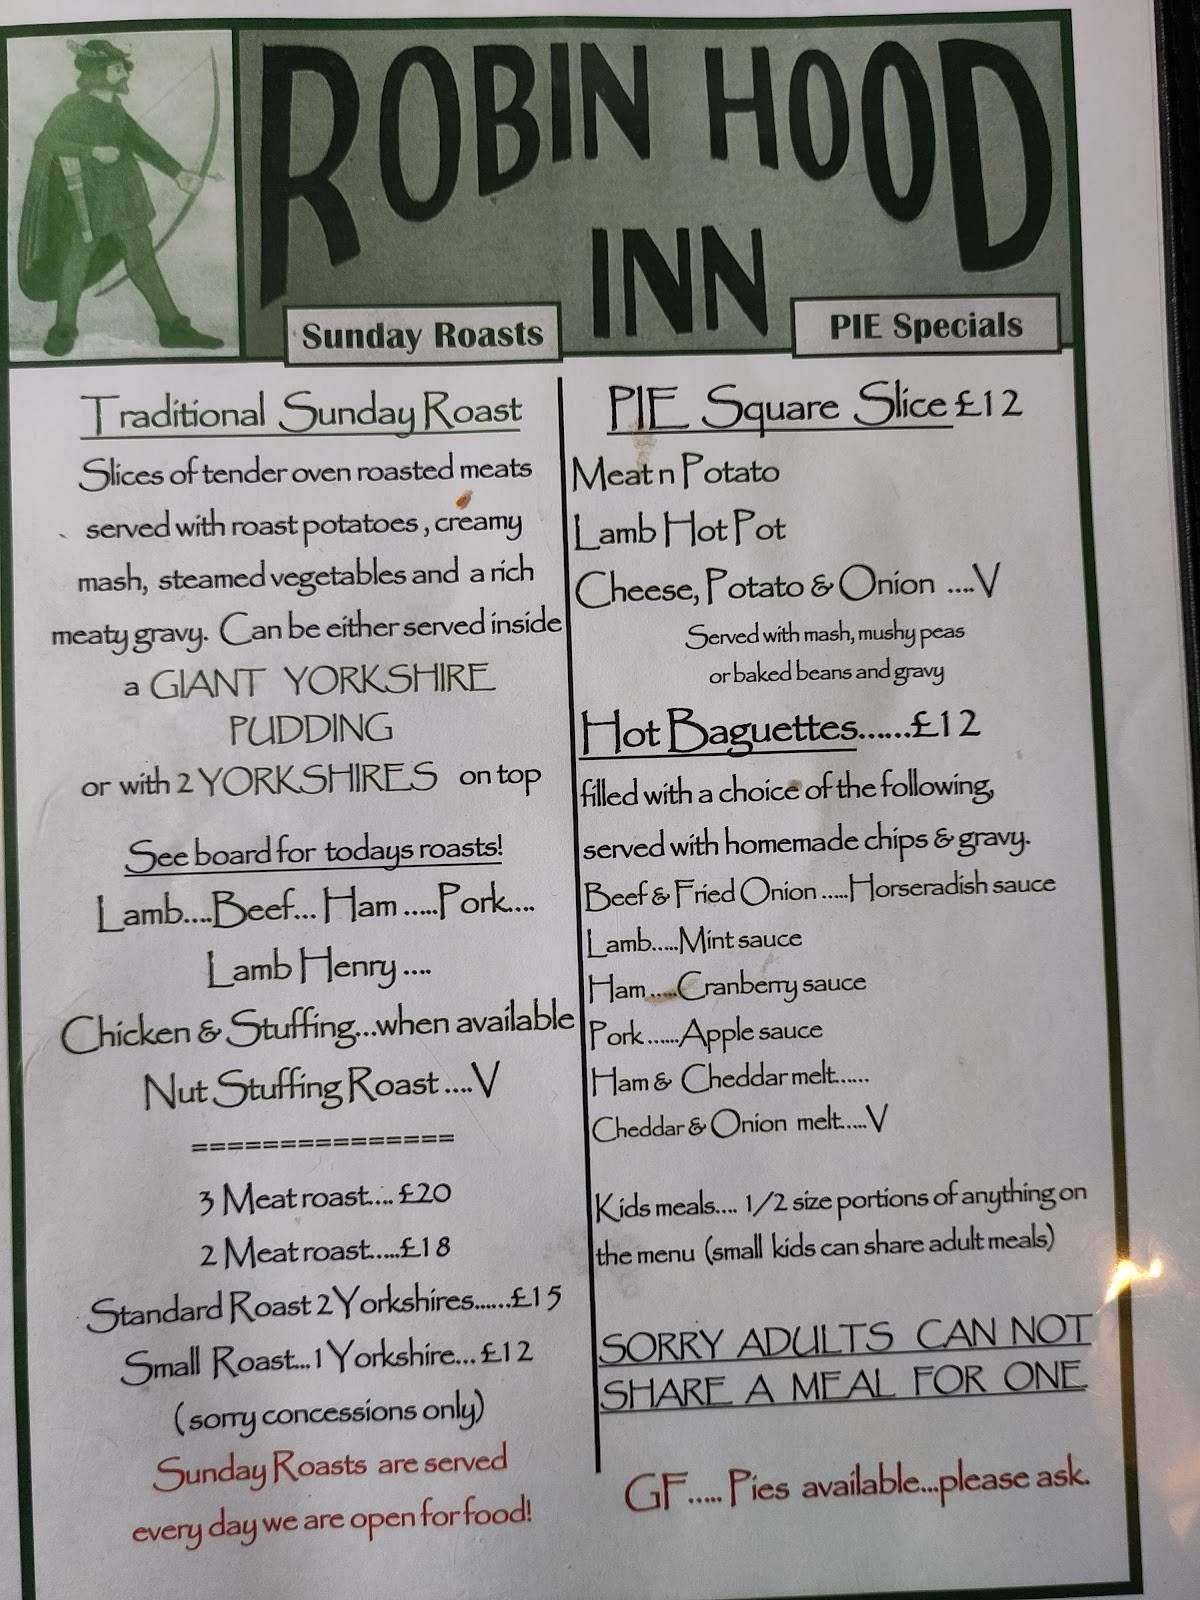 ROBIN HOOD
INN
Sunday Roasts
PIE Specials
Traditional Sunday Roast
Slices of tender oven roasted meats
served with roast potatoes, creamy
mash, steamed vegetables and a rich
meaty gravy. Can be either served inside
a GIANT YORKSHIRE
PUDDING
or with 2 YORKSHIRES on top
See board for todays roasts!
Lamb....Beef... Ham .....Pork....
Lamb Henry ....
Chicken & Stuffing...when available
Nut Stuffing Roast ....V
===============
3 Meat roast.... £20
2 Meat roast.....£18
Standard Roast 2 Yorkshires......£15
Small Roast...1 Yorkshire... £12
(sorry concessions only)
Sunday Roasts are served
every day we are open for food!
PIE Square Slice £12
Meat n Potato
Lamb Hot Pot
Cheese, Potato & Onion ....V
Served with mash, mushy peas
or baked beans and gravy
Hot Baguettes......£12
filled with a choice of the following,
served with homemade chips & gravy.
Beef & Fried Onion .....Horseradish sauce
Lamb.....Mint sauce
Ham .....Cranberry sauce
Pork ......Apple sauce
Ham & Cheddar melt......
Cheddar & Onion melt.....V
Kids meals.... 1/2 size portions of anything on
the menu (small kids can share adult meals)
SORRY ADULTS CAN NOT
SHARE A MEAL FOR ONE
GF..... Pies available...please ask.